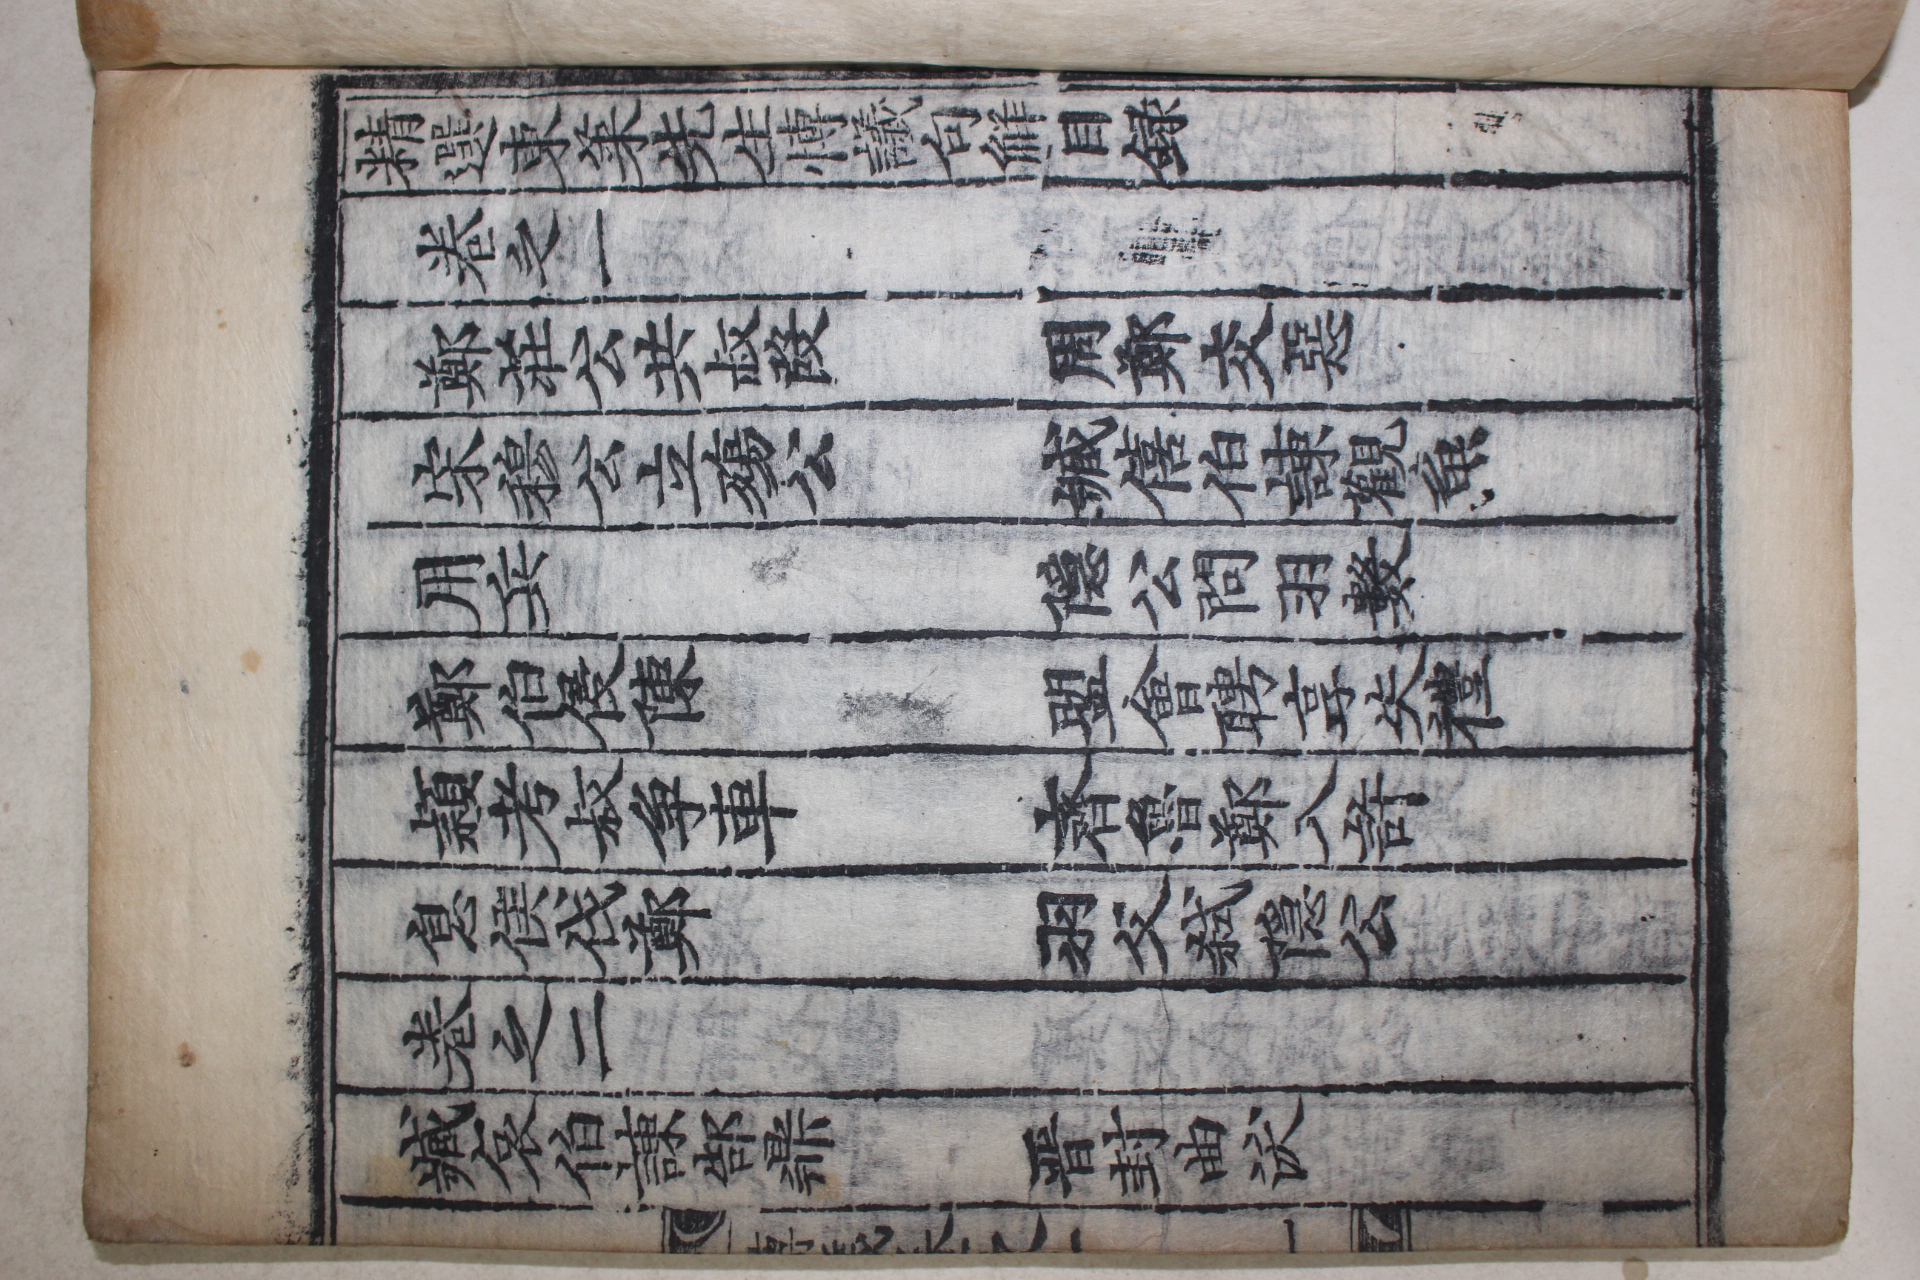 精選東萊先生愽議句解目錄
卷之一
鄭莊公共叔段 周鄭交惡
宋穆公立殤公 臧僖伯諫觀魚
用兵 隱公問羽數
鄭伯侵陳 盟會聘享失禮
頴考叔爭車 齊魯鄭入許
息侯伐鄭 羽父弑隱公
卷之二
臧哀伯諫郜鼎 晉封曲沃